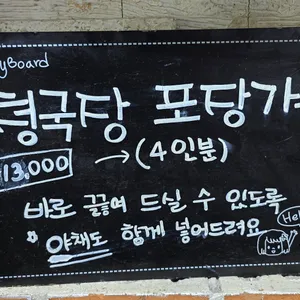 yBoard
형국탕 포탕가
13,000 → (4인분)
바로 끓여 드실 수 있도록
야채도 함께 넣어드려요
Hel